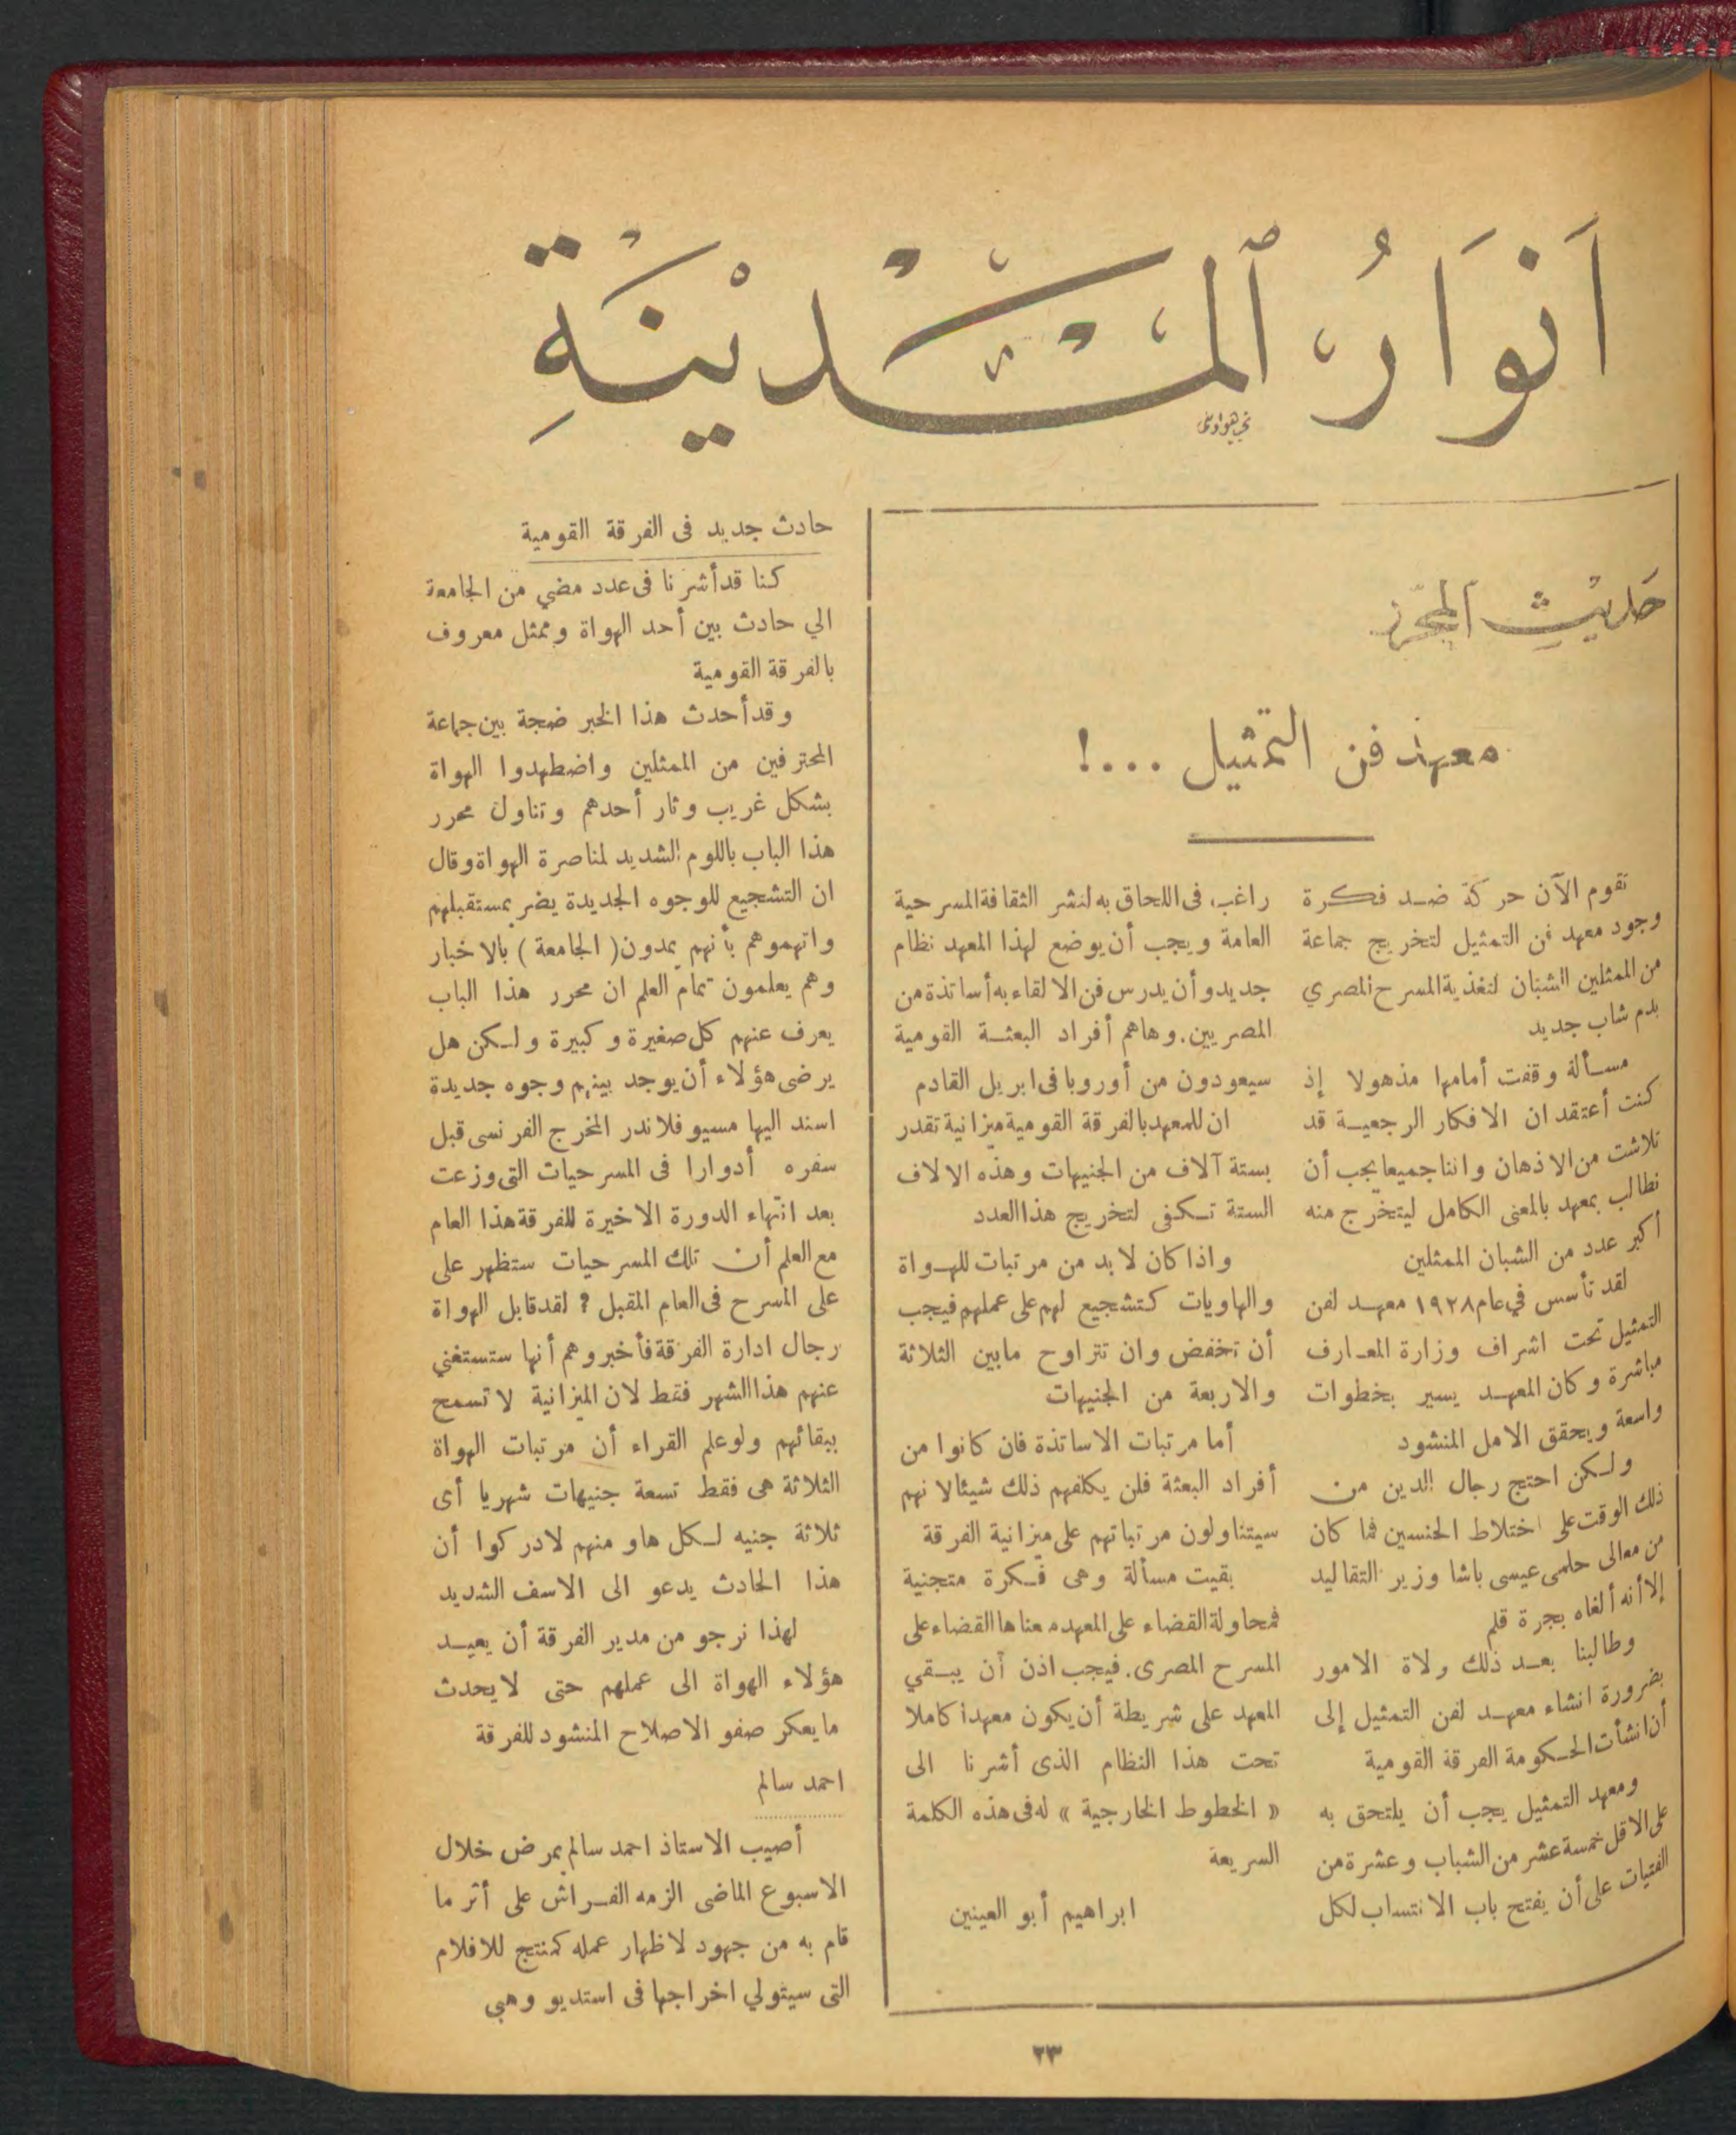 أَنْوَارُ ٱلْمَدِيْنَةِ
حديث المحرر
معهد فن التمثيل ...!
تقوم الآن حركة ضد فكرة
وجود معهد فن التمثيل لتخريج جماعة
من الممثلين الشبان لتغذية المسرح المصري
بدم شاب جديد
مسألة وقفت أمامها مذهولا إذ
كنت أعتقد ان الافكار الرجعية قد
تلاشت من الاذهان واننا جميعا يجب أن
نطالب بمعهد بالمعنى الكامل ليتخرج منه
أكبر عدد من الشبان الممثلين
لقد تأسس في عام ١٩٢٨ معهد لفن
التمثيل تحت اشراف وزارة المعارف
مباشرة وكان المعهد يسير بخطوات
واسعة ويحقق الامل المنشود
ولكن احتج رجال الدين من
ذلك الوقت على اختلاط الجنسين فما كان
من معالى حلمى عيسى باشا وزير التقاليد
إلا أنه ألغاه بجرة قلم
وطالبنا بعد ذلك ولاة الامور
بضرورة انشاء معهد لفن التمثيل إلى
أن انشأت الحكومة الفرقة القومية
ومعهد التمثيل يجب أن يلتحق به
على الاقل خمسة عشر من الشباب وعشرة من
الفتيات على أن يفتح باب الانتساب لكل
راغب فى اللحاق به لنشر الثقافة المسرحية
العامة ويجب أن يوضع لهذا المعهد نظام
جديد وأن يدرس فن الالقاء به أساتذة من
المصريين. وهاهم أفراد البعثة القومية
سيعودون من أوروبا فى ابريل القادم
ان للمعهد بالفرقة القومية ميزانية تقدر
بستة آلاف من الجنيهات وهذه الالاف
الستة تكفى لتخريج هذا العدد
واذا كان لا بد من مرتبات للهواة
والهاويات كتشجيع لهم على عملهم فيجب
أن تخفض وان تتراوح مابين الثلاثة
والاربعة من الجنيهات
أما مرتبات الاساتذة فان كانوا من
أفراد البعثة فلن يكلفهم ذلك شيئا لانهم
سيتناولون مرتباتهم على ميزانية الفرقة
بقيت مسألة وهى فكرة متجنية
فمحاولة القضاء على المعهد معناها القضاء على
المسرح المصرى. فيجب اذن أن يبقي
المعهد على شريطة أن يكون معهدا كاملا
تحت هذا النظام الذى أشرنا الى
« الخطوط الخارجية » له فى هذه الكلمة
السريعة
ابراهيم أبو العينين
حادث جديد فى الفرقة القومية
كنا قد أشرنا فى عدد مضي من الجامعة
الي حادث بين أحد الهواة وممثل معروف
بالفرقة القومية
وقد أحدث هذا الخبر ضجة بين جماعة
المحترفين من الممثلين واضطهدوا الهواة
بشكل غريب وثار أحدهم وتناول محرر
هذا الباب باللوم الشديد لمناصرة الهواة وقال
ان التشجيع للوجوه الجديدة يضر بمستقبلهم
واتهموهم بأنهم يمدون ( الجامعة ) بالاخبار
وهم يعلمون تمام العلم ان محرر هذا الباب
يعرف عنهم كل صغيرة وكبيرة ولكن هل
يرضى هؤلاء أن يوجد بينهم وجوه جديدة
اسند اليها مسيو فلاندر المخرج الفرنسى قبل
سفره أدوارا فى المسرحيات التى وزعت
بعد انتهاء الدورة الاخيرة للفرقة هذا العام
مع العلم أن تلك المسرحيات ستظهر على
على المسرح فى العام المقبل ؟ لقد قابل الهواة
رجال ادارة الفرقة فأخبروهم أنها ستستغني
عنهم هذا الشهر فقط لان الميزانية لا تسمح
ببقائهم ولو علم القراء أن مرتبات الهواة
الثلاثة هى فقط تسعة جنيهات شهريا أى
ثلاثة جنيه لكل هاو منهم لادركوا أن
هذا الحادث يدعو الى الاسف الشديد
لهذا نرجو من مدير الفرقة أن يعيد
هؤلاء الهواة الى عملهم حتى لا يحدث
ما يعكر صفو الاصلاح المنشود للفرقة
احمد سالم
أصيب الاستاذ احمد سالم بمرض خلال
الاسبوع الماضى الزمه الفراش على أثر ما
قام به من جهود لاظهار عمله كمنتج للافلام
التى سيتولي اخراجها فى استديو وهبي
٢٣